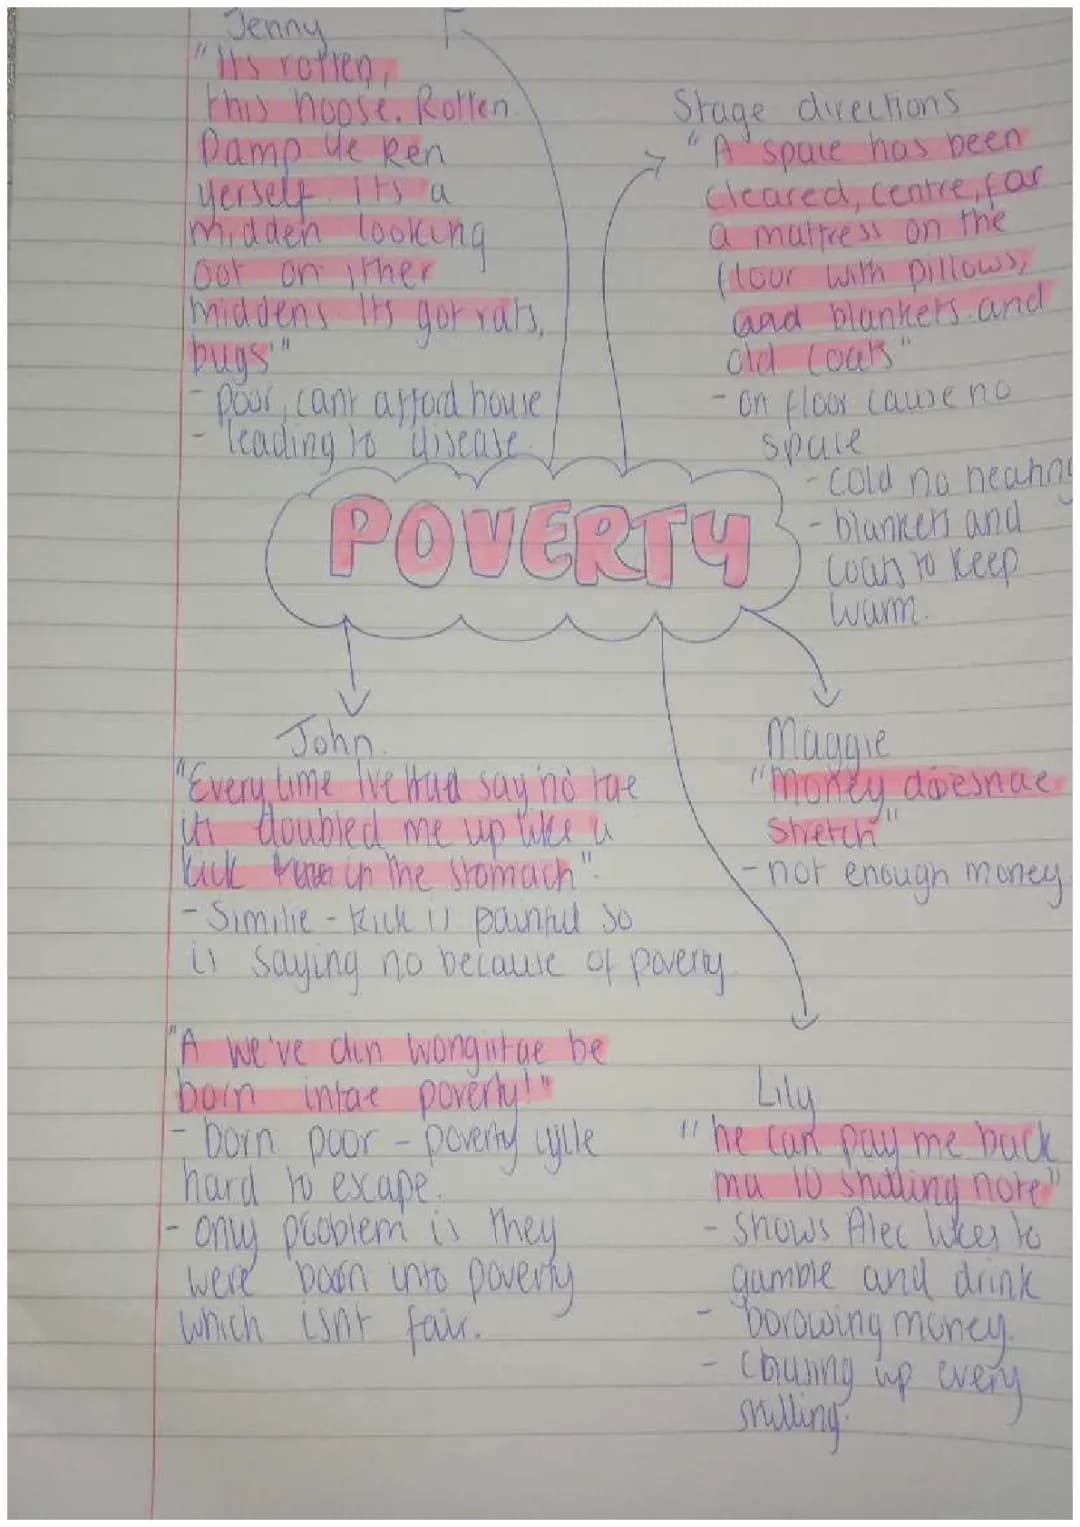 Jenny
"Its rotten,
this hoose. Rotten.
Damp Ye Ken
yerself. Its a
midden looking
oot on ither
middens. Its got rats,
bugs"
- poor, cant afford house
- leading to disease.
Stage directions
"A space has been
cleared, centre, for
a mattress on the
floor with pillows,
and blankets and
old coats"
- on floor cause no
space
- cold no heating
- blankets and
coats to keep
warm.
POVERTY
John.
"Every time I've Had say no tae
its doubled me up like a
kick in the stomach".
- Similie - kick is painful so
is saying no because of poverty.
"A we've din wongistae be
born intae poverty!"
- born poor - poverty cylle
hard to exape.
- only problem is they
were born into poverty
which isnt fair.
Maggie
"Money doesnae
stretch"
- not enough money
Lily
"he can pay me back
ma 10 shilling note"
- shows Alec likes to
gamble and drink
- borowing money.
- up every
shilling.